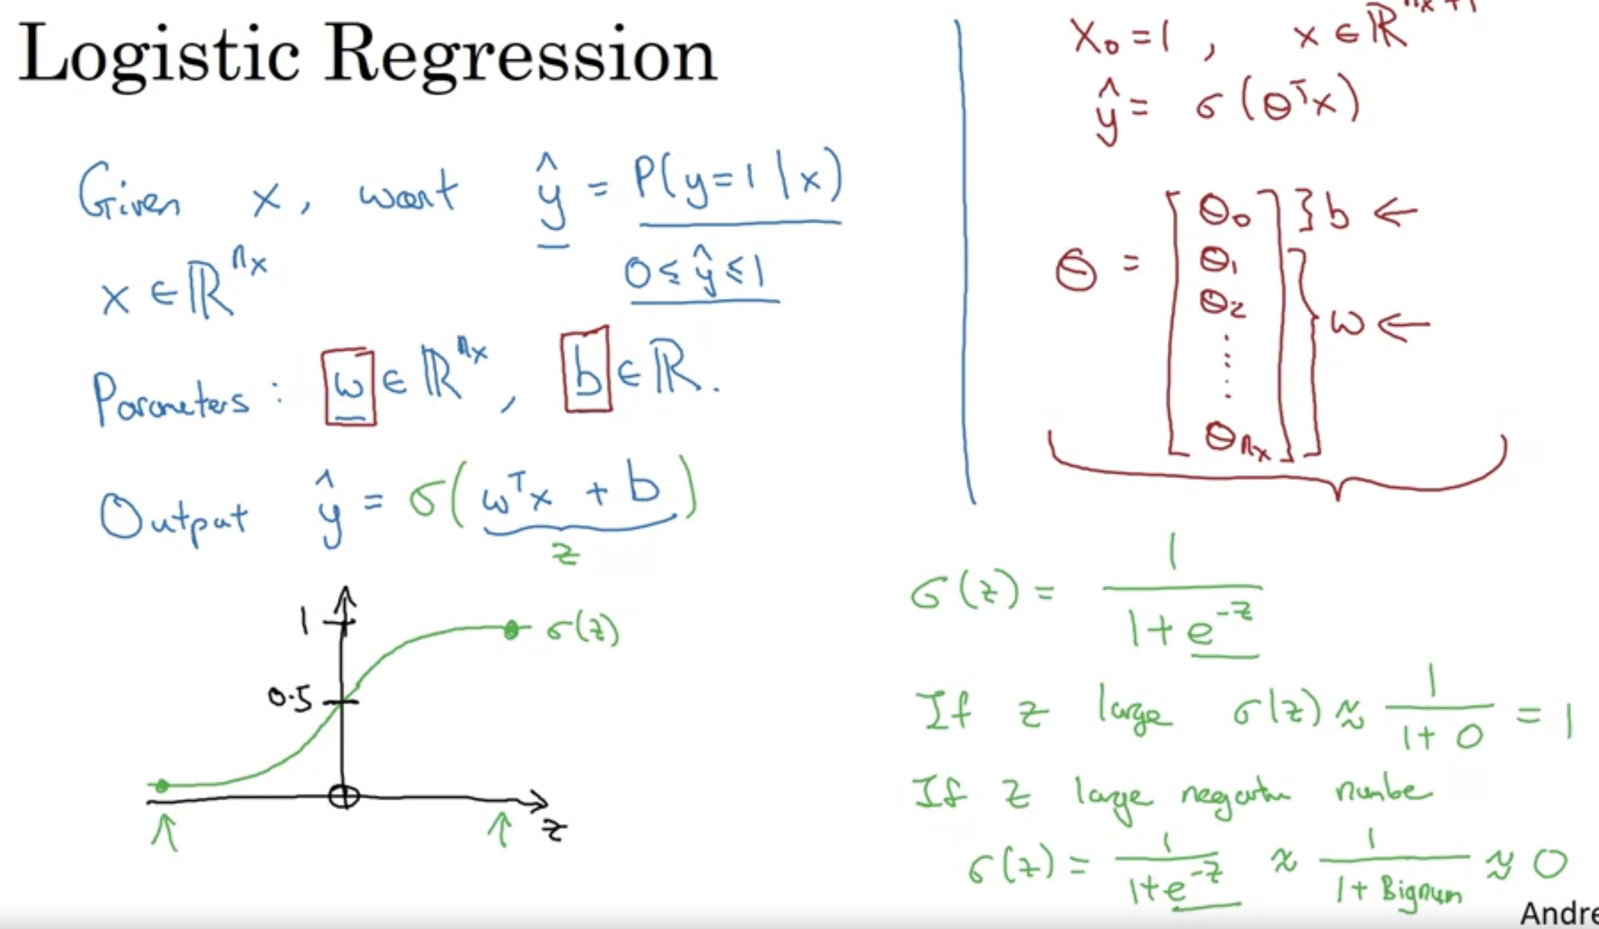 Logistic Regression
Given x, want ŷ = P(y=1|x)
x ∈ ℝ^{n_x}
0 ≤ ŷ ≤ 1
Parameters: w ∈ ℝ^{n_x}, b ∈ ℝ.
Output ŷ = σ(w^T x + b)
z
1
σ(z)
0.5
z
x_0 = 1, x ∈ ℝ^{n_x+1}
ŷ = σ(θ^T x)
θ = [θ_0 θ_1 θ_2 ⋮ θ_{n_x}]
} b ←
} w ←
σ(z) = 1/(1+e^{-z})
If z large σ(z) ≈ 1/(1+0) = 1
If z large negative number
σ(z) = 1/(1+e^{-z}) ≈ 1/(1+Bignum) ≈ 0
Andre